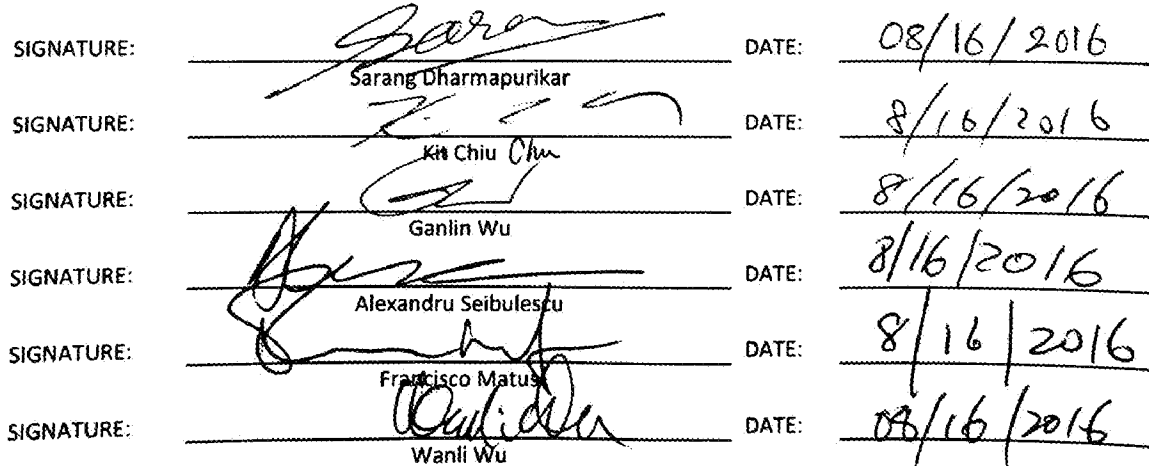 SIGNATURE: Saran DATE: 08/16/2016
Sarang Dharmapurikar
SIGNATURE: DATE: 8/16/2016
Kit Chiu Chu
SIGNATURE: DATE: 8/16/2016
Ganlin Wu
SIGNATURE: DATE: 8/16/2016
Alexandru Seibulescu
SIGNATURE: DATE: 8/16/2016
Francisco Matus
SIGNATURE: Wanli Wu DATE: 08/16/2016
Wanli Wu